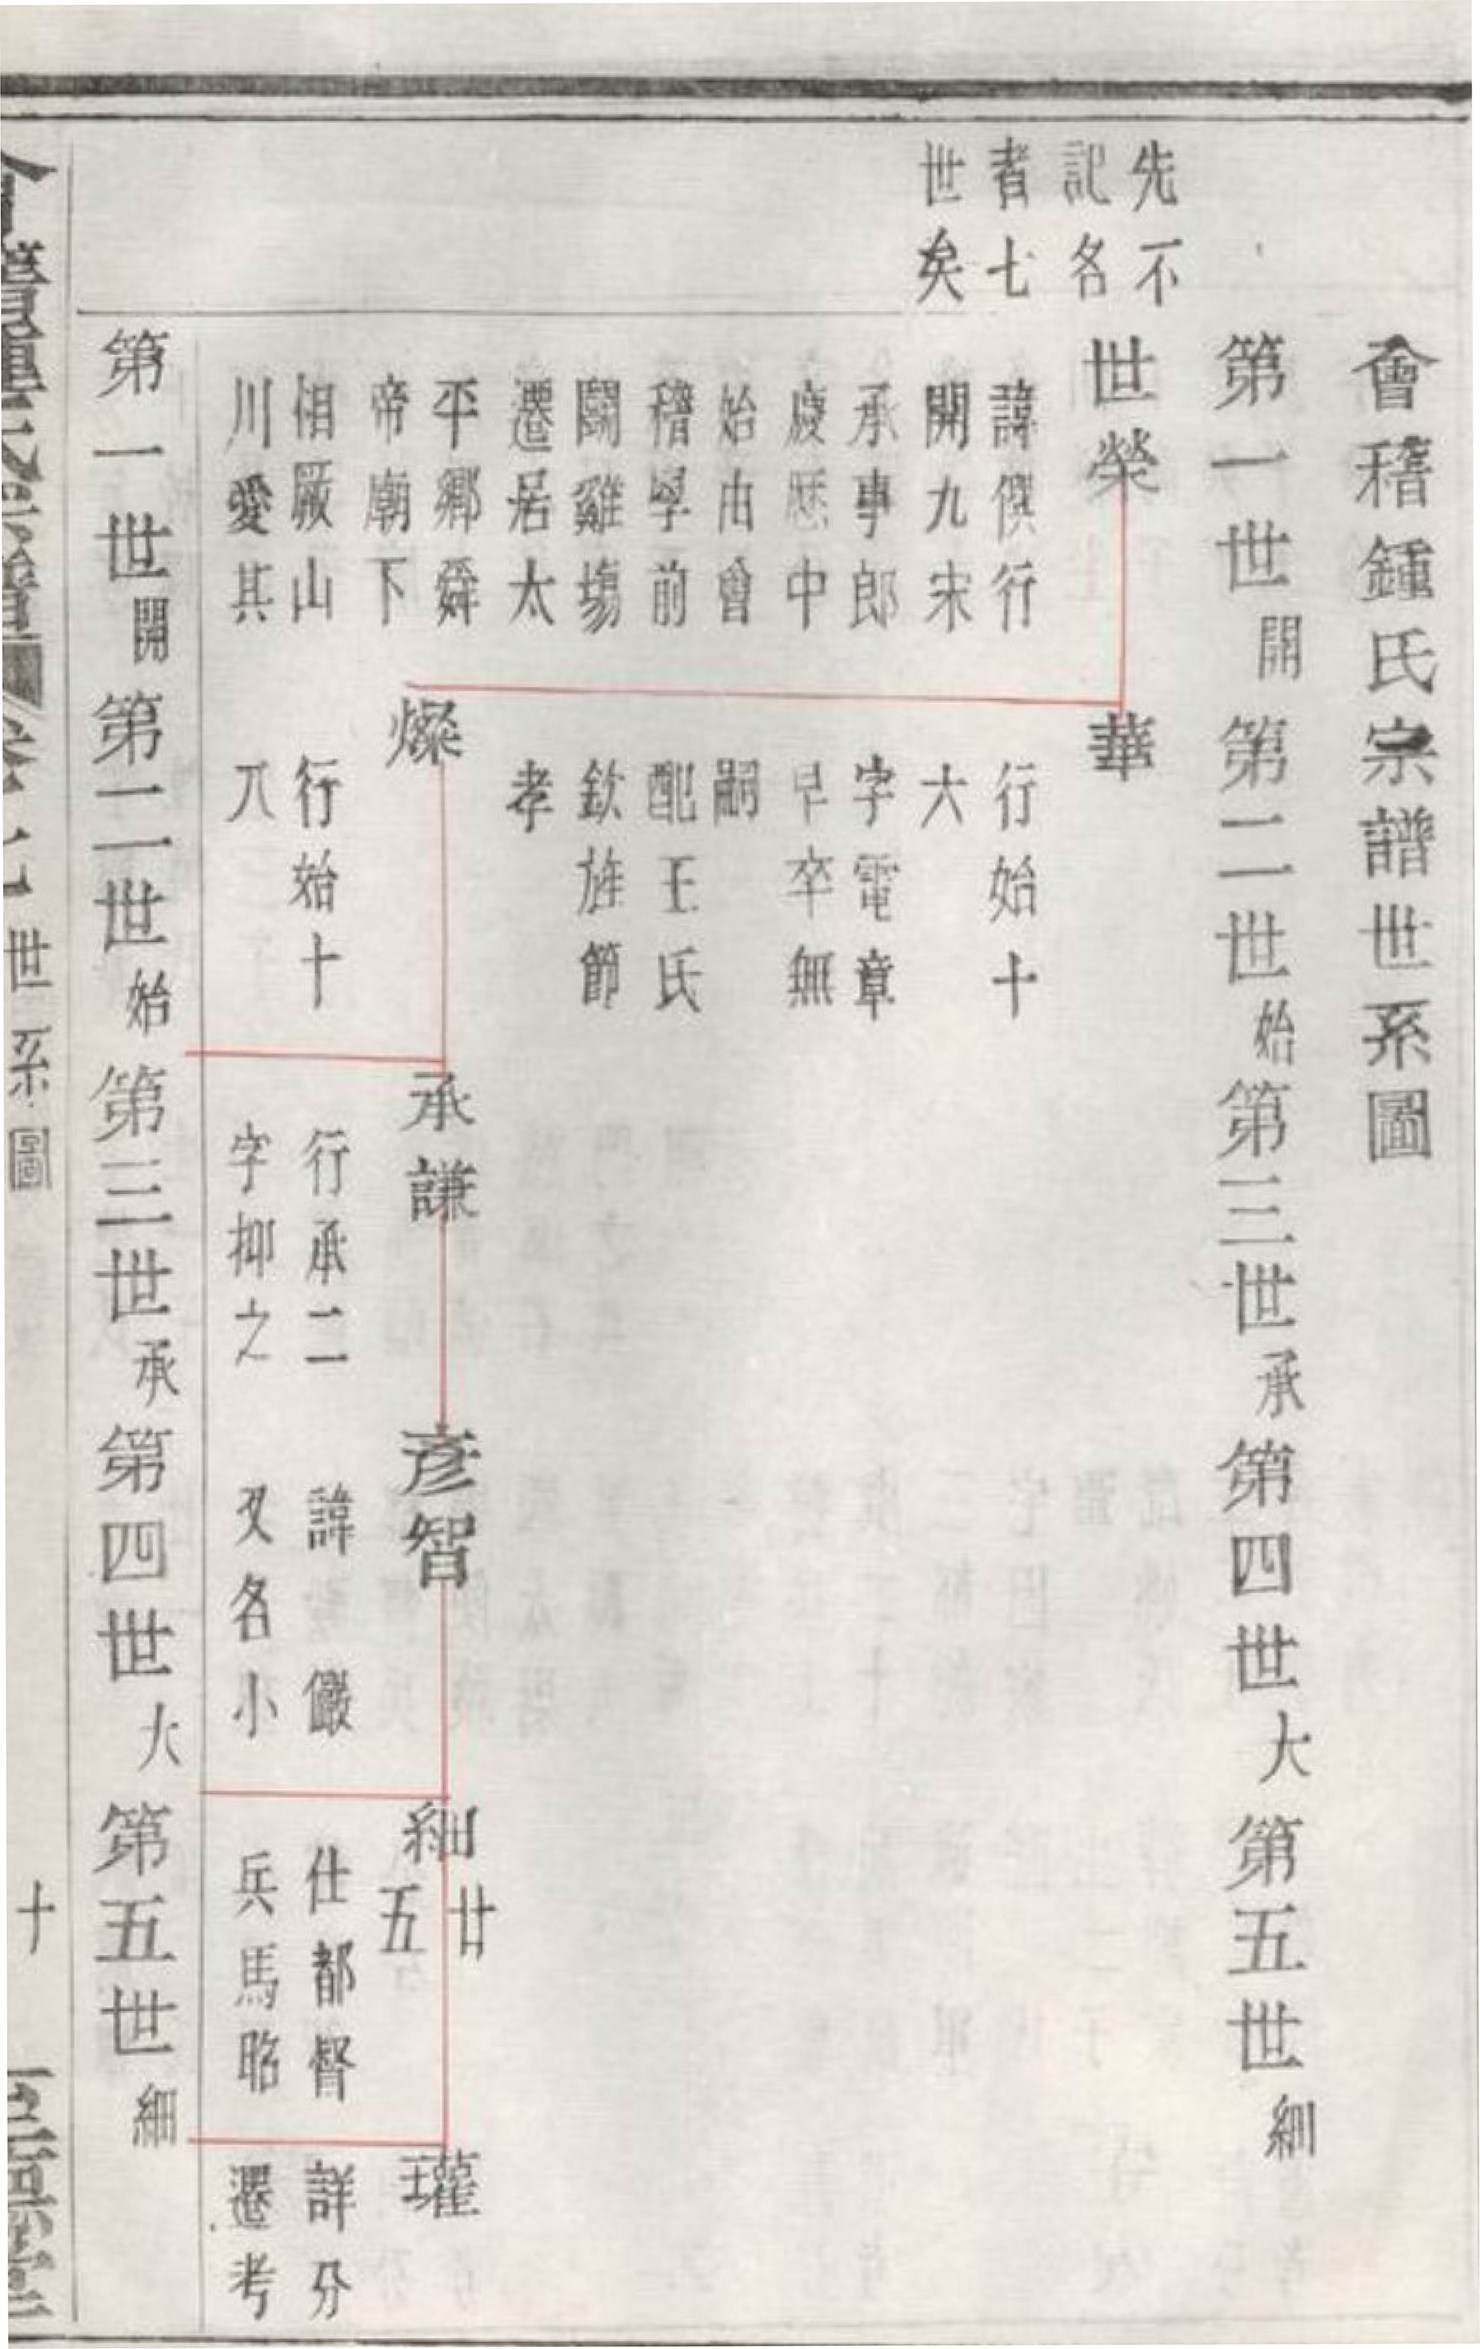 會稽鍾氏宗譜世系圖
第一世開 第二世始 第三世承 第四世大 第五世細
先不
記名
者七
世矣
世榮
諱僎行
開九宋
承事郎
慶歷中
始由會
稽學前
鬬雞塲
遷居太
平鄉舜
帝廟下
相厥山
川愛其
華
行始十
六
字電章
早卒無
嗣
配王氏
欽旌節
孝
燦
行始十
八
承謙
行承二
字抑之
彥智
諱儼
又名小
細廿五
仕都督
兵馬昭
瓘
詳分
遷考
第一世開 第二世始 第三世承 第四世大 第五世細
世系圖 十